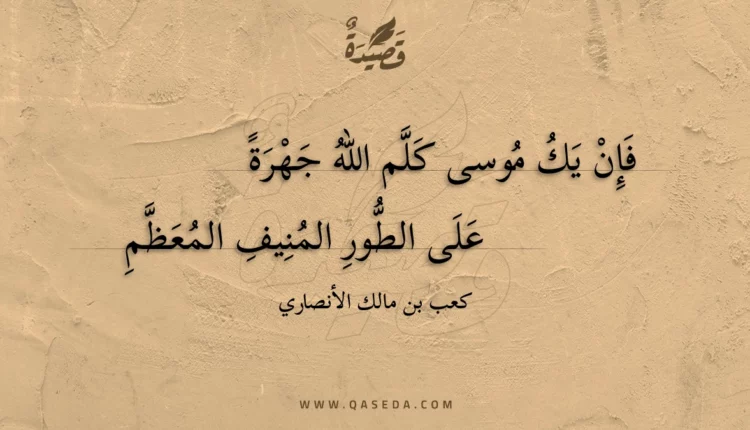 قَصِيدَةٌ
فَإِنْ يَكُ مُوسى كَلَّم اللهُ جَهْرَةً
عَلَى الطُّورِ المُنِيفِ المُعَظَّمِ
كعب بن مالك الأنصاري
WWW.QASEDA.COM